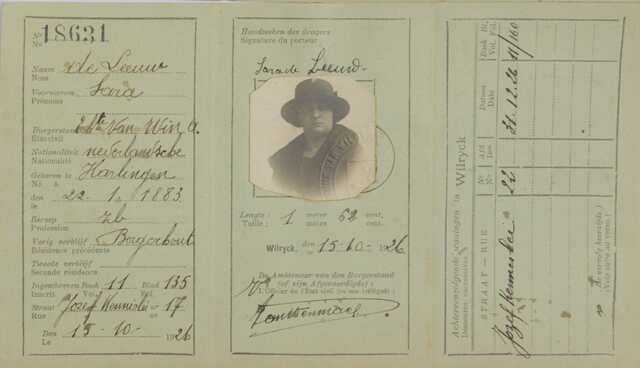 No
No 18631
Naam
Nom de Leeuw
Voornamen
Prénoms Sara
Burgerstand
Etat-civil Van Win A.
Nationaliteit
Nationalité nederlandsche
Geboren te
Né à Harlingen
den
le 22. 1. 1883
Beroep
Profession zb
Vorig verblijf
Résidence précédente Borgerhout
Tweede verblijf
Seconde résidence
Ingeschreven Boek 11 Blad 135
Inscrit Vol. Fol.
Straat Jozef Hennislei Nr 17
Rue No
Den 15-10- 1926
Le
Handteeken des dragers
Signature du porteur
Sara de Leeuw
Lengte : 1 meter 62 cent.
Taille : mètre cent.
Wilryck, den 15-10- 1926
le
De Ambtenaar van den Burgerstand
(of zijn Afgevaardigde) :
L'Officier de l'Etat civil (ou son délégué) :
Achtereenvolgende woningen in
Domiciles successifs à Wilryck
STRAAT — RUE
Nr
No
Art
Dist
Datum
Date
Boek Bl.
Vol. Fol.
Jozef Hennislei
22
21.12.26
11/160
(Voir suite au verso)